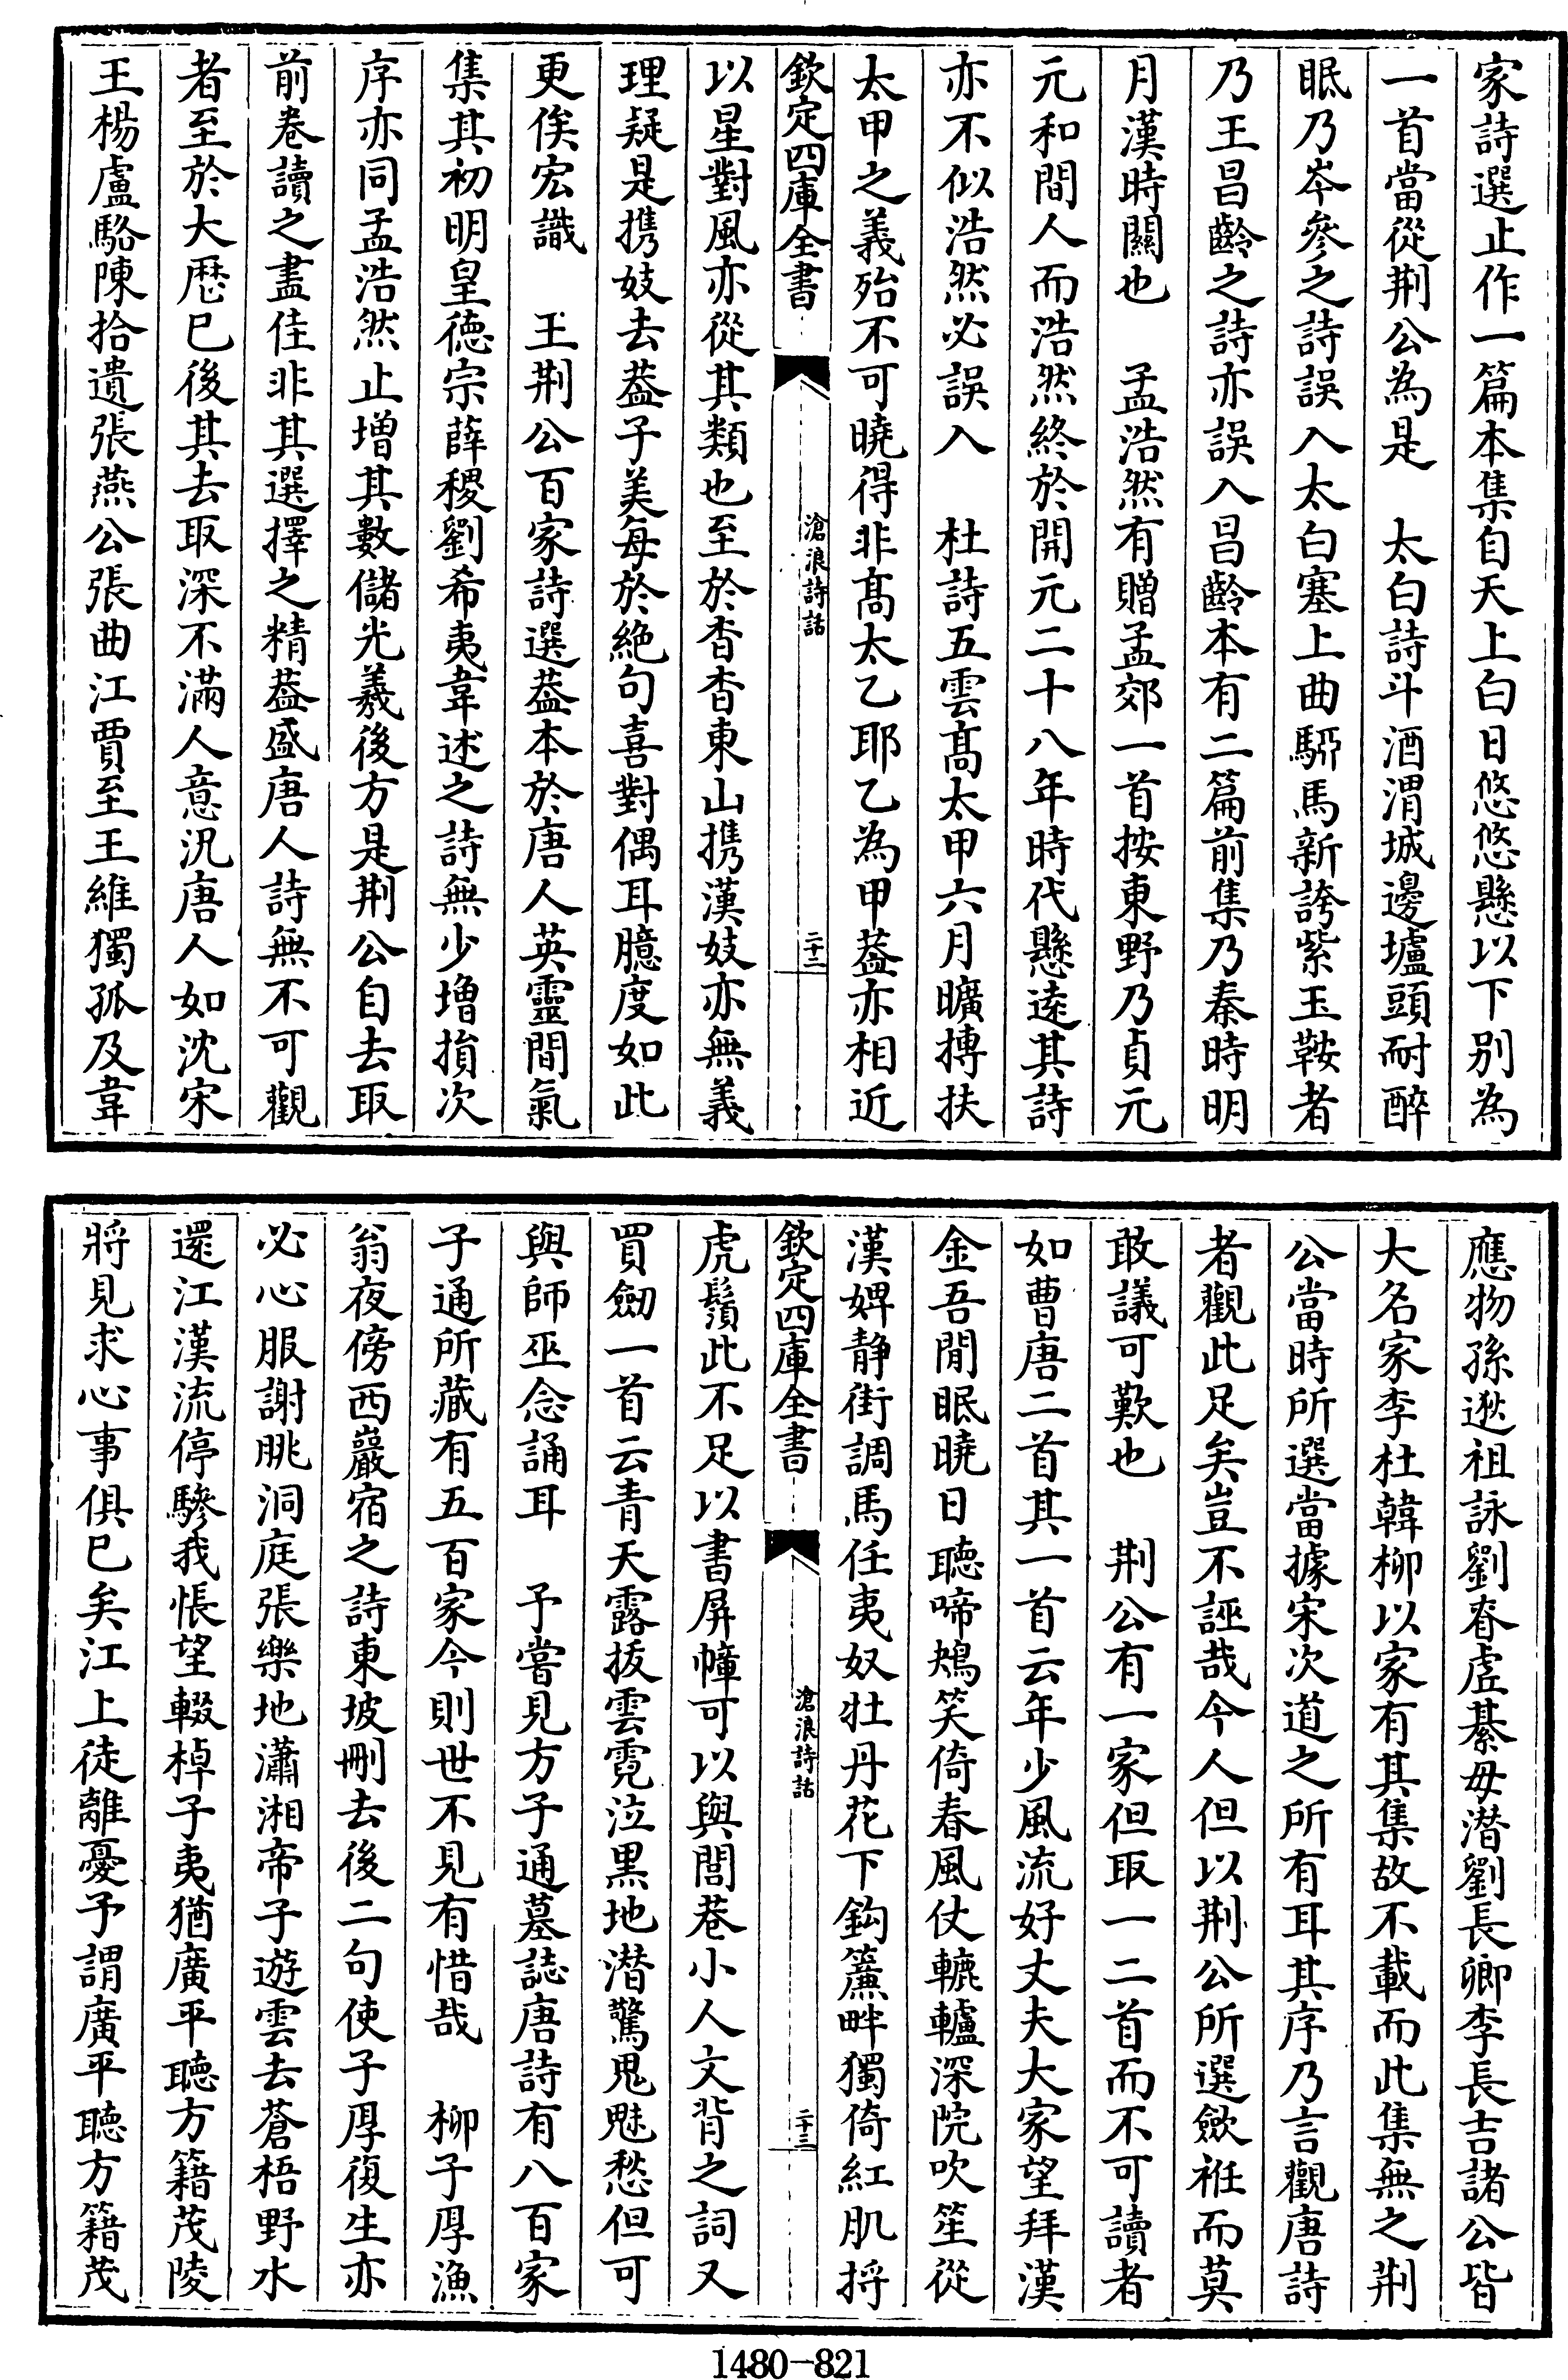 家詩選止作一篇本集自天上白日悠悠懸以下別為
一首當從荆公為是　太白詩斗酒渭城邊壚頭耐醉
眠乃岑參之詩誤入太白塞上曲騮馬新誇紫玉鞍者
乃王昌齡之詩亦誤入昌齡本有二篇前集乃秦時明
月漢時關也　孟浩然有贈孟郊一首按東野乃貞元
元和間人而浩然終於開元二十八年時代懸逺其詩
亦不似浩然必誤入　杜詩五雲髙太甲六月曠摶扶
太甲之義殆不可曉得非髙太乙耶乙為甲葢亦相近
欽定四庫全書
滄浪詩話
二十二
以星對風亦從其類也至於杳杳東山携漢妓亦無義
理疑是携妓去葢子美每於絶句喜對偶耳臆度如此
更俟宏識　王荆公百家詩選葢本於唐人英靈間氣
集其初明皇徳宗薛稷劉希夷韋述之詩無少增損次
序亦同孟浩然止增其數儲光羲後方是荆公自去取
前卷讀之盡佳非其選擇之精葢盛唐人詩無不可觀
者至於大厯已後其去取深不滿人意況唐人如沈宋
王楊盧駱陳拾遺張燕公張曲江賈至王維獨孤及韋
應物孫逖祖詠劉春虚綦毋潜劉長卿李長吉諸公皆
大名家李杜韓柳以家有其集故不載而此集無之荆
公當時所選當據宋次道之所有耳其序乃言觀唐詩
者觀此足矣豈不誣哉今人但以荆公所選歛袵而莫
敢議可歎也　荆公有一家但取一二首而不可讀者
如曹唐二首其一首云年少風流好丈夫大家望拜漢
金吾閒眠曉日聴啼鴂笑倚春風仗轆轤深院吹笙從
漢婢静街調馬任夷奴牡丹花下鈎簾畔獨倚紅肌捋
欽定四庫全書
滄浪詩話
二十三
虎鬚此不足以書屏幛可以與閭巷小人文背之詞又
買劒一首云青天露拔雲霓泣黒地潜驚鬼魅愁但可
與師巫念誦耳　予嘗見方子通墓誌唐詩有八百家
子通所藏有五百家今則世不見有惜哉　柳子厚漁
翁夜傍西巖宿之詩東坡刪去後二句使子厚復生亦
必心服謝朓洞庭張樂地瀟湘帝子遊雲去蒼梧野水
還江漢流停驂我悵望輟棹子夷猶廣平聴方籍茂陵
將見求心事俱已矣江上徒離憂予謂廣平聴方籍茂
1480-821